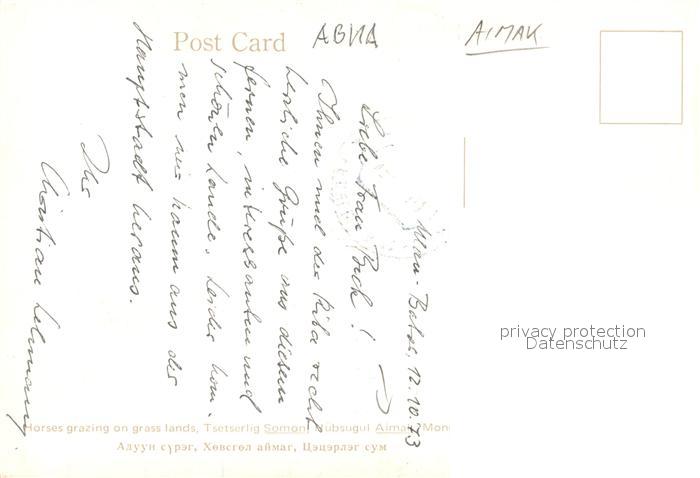 Post Card
АВИА
AIMAK
Ulan-Bator, 12.10.73
Liebe Frau Beck!
Ihnen und der Kita recht
herzliche Grüße aus diesem
fernen, interessanten und
schönen Lande. Leider kom-
men wir kaum aus der
Hauptstadt heraus.
Ihr
Christian Lehmann
Horses grazing on grass lands, Tsetserlig Somon, Hubsugul Aimak, Mon
Адуун сүрэг, Хөвсгөл аймаг, Цэцэрлэг сум
privacy protection
Datenschutz